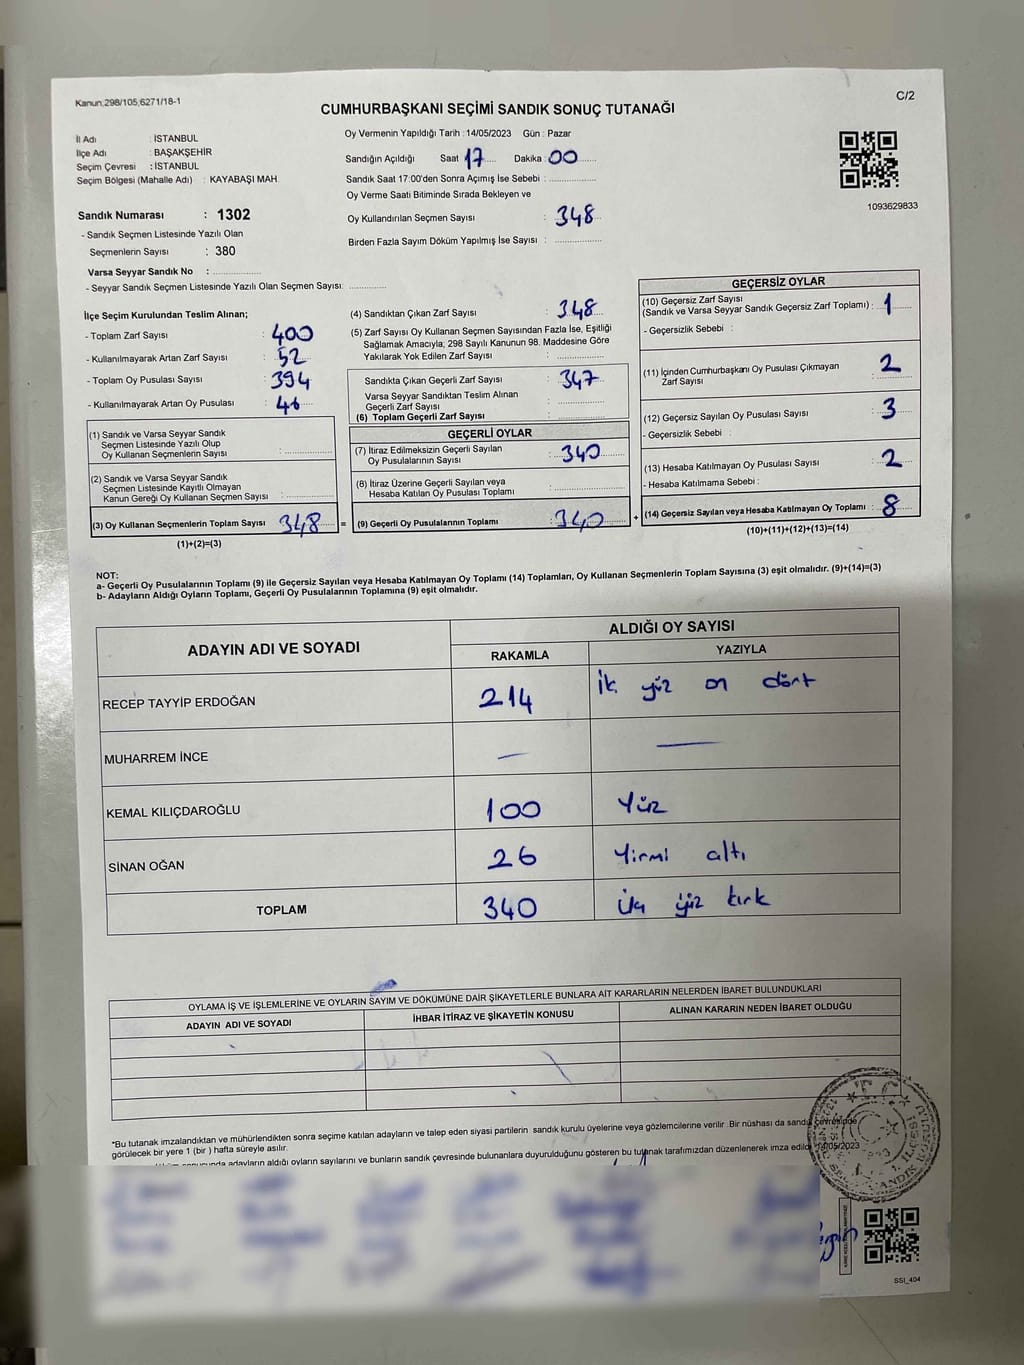 Kanun:298/105,6271/18-1
C/2
CUMHURBAŞKANI SEÇİMİ SANDIK SONUÇ TUTANAĞI
İl Adı : İSTANBUL
İlçe Adı : BAŞAKŞEHİR
Seçim Çevresi : İSTANBUL
Seçim Bölgesi (Mahalle Adı) : KAYABAŞI MAH.
Sandık Numarası : 1302
- Sandık Seçmen Listesinde Yazılı Olan
Seçmenlerin Sayısı : 380
Varsa Seyyar Sandık No :
- Seyyar Sandık Seçmen Listesinde Yazılı Olan Seçmen Sayısı:
Oy Vermenin Yapıldığı Tarih : 14/05/2023 Gün : Pazar
Sandığın Açıldığı Saat 17 Dakika : 00
Sandık Saat 17:00'den Sonra Açımış İse Sebebi :
Oy Verme Saati Bitiminde Sırada Bekleyen ve
Oy Kullandırılan Seçmen Sayısı : 348
Birden Fazla Sayım Döküm Yapılmış İse Sayısı :
1093629833
İlçe Seçim Kurulundan Teslim Alınan;
- Toplam Zarf Sayısı : 400
- Kullanılmayarak Artan Zarf Sayısı : 52
- Toplam Oy Pusulası Sayısı : 394
- Kullanılmayarak Artan Oy Pusulası : 46
(1) Sandık ve Varsa Seyyar Sandık
Seçmen Listesinde Yazılı Olup
Oy Kullanan Seçmenlerin Sayısı :
(2) Sandık ve Varsa Seyyar Sandık
Seçmen Listesinde Kayıtlı Olmayan
Kanun Gereği Oy Kullanan Seçmen Sayısı :
(3) Oy Kullanan Seçmenlerin Toplam Sayısı 348 =
(1)+(2)=(3)
(4) Sandıktan Çıkan Zarf Sayısı : 348
(5) Zarf Sayısı Oy Kullanan Seçmen Sayısından Fazla İse, Eşitliği
Sağlamak Amacıyla; 298 Sayılı Kanunun 98. Maddesine Göre
Yakılarak Yok Edilen Zarf Sayısı :
Sandıkta Çıkan Geçerli Zarf Sayısı : 347
Varsa Seyyar Sandıktan Teslim Alınan
Geçerli Zarf Sayısı :
(6) Toplam Geçerli Zarf Sayısı :
GEÇERLİ OYLAR
(7) İtiraz Edilmeksizin Geçerli Sayılan
Oy Pusulalarının Sayısı : 340
(8) İtiraz Üzerine Geçerli Sayılan veya
Hesaba Katılan Oy Pusulası Toplamı :
(9) Geçerli Oy Pusulalarının Toplamı : 340 +
GEÇERSİZ OYLAR
(10) Geçersiz Zarf Sayısı
(Sandık ve Varsa Seyyar Sandık Geçersiz Zarf Toplamı) : 1
- Geçersizlik Sebebi :
(11) İçinden Cumhurbaşkanı Oy Pusulası Çıkmayan
Zarf Sayısı : 2
(12) Geçersiz Sayılan Oy Pusulası Sayısı : 3
- Geçersizlik Sebebi :
(13) Hesaba Katılmayan Oy Pusulası Sayısı : 2
- Hesaba Katılmama Sebebi :
(14) Geçersiz Sayılan veya Hesaba Katılmayan Oy Toplamı : 8
(10)+(11)+(12)+(13)=(14)
NOT:
a- Geçerli Oy Pusulalarının Toplamı (9) ile Geçersiz Sayılan veya Hesaba Katılmayan Oy Toplamı (14) Toplamları, Oy Kullanan Seçmenlerin Toplam Sayısına (3) eşit olmalıdır. (9)+(14)=(3)
b- Adayların Aldığı Oyların Toplamı, Geçerli Oy Pusulalarının Toplamına (9) eşit olmalıdır.
ADAYIN ADI VE SOYADI
ALDIĞI OY SAYISI
RAKAMLA YAZIYLA
RECEP TAYYİP ERDOĞAN 214 iki yüz on dört
MUHARREM İNCE — —
KEMAL KILIÇDAROĞLU 100 Yüz
SİNAN OĞAN 26 Yirmi altı
TOPLAM 340 yüz kırk
OYLAMA İŞ VE İŞLEMLERİNE VE OYLARIN SAYIM VE DÖKÜMÜNE DAİR ŞİKAYETLERLE BUNLARA AİT KARARLARIN NELERDEN İBARET BULUNDUKLARI
ADAYIN ADI VE SOYADI İHBAR İTİRAZ VE ŞİKAYETİN KONUSU ALINAN KARARIN NEDEN İBARET OLDUĞU
*Bu tutanak imzalandıktan ve mühürlendikten sonra seçime katılan adayların ve talep eden siyasi partilerin sandık kurulu üyelerine veya gözlemcilerine verilir. Bir nüshası da sandık çevresinde
görülecek bir yere 1 (bir ) hafta süreyle asılır.
adayların aldığı oyların sayılarını ve bunların sandık çevresinde bulunanlara duyurulduğunu gösteren bu tutanak tarafımızdan düzenlenerek imza edildi. 14/05/2023
SSI_404